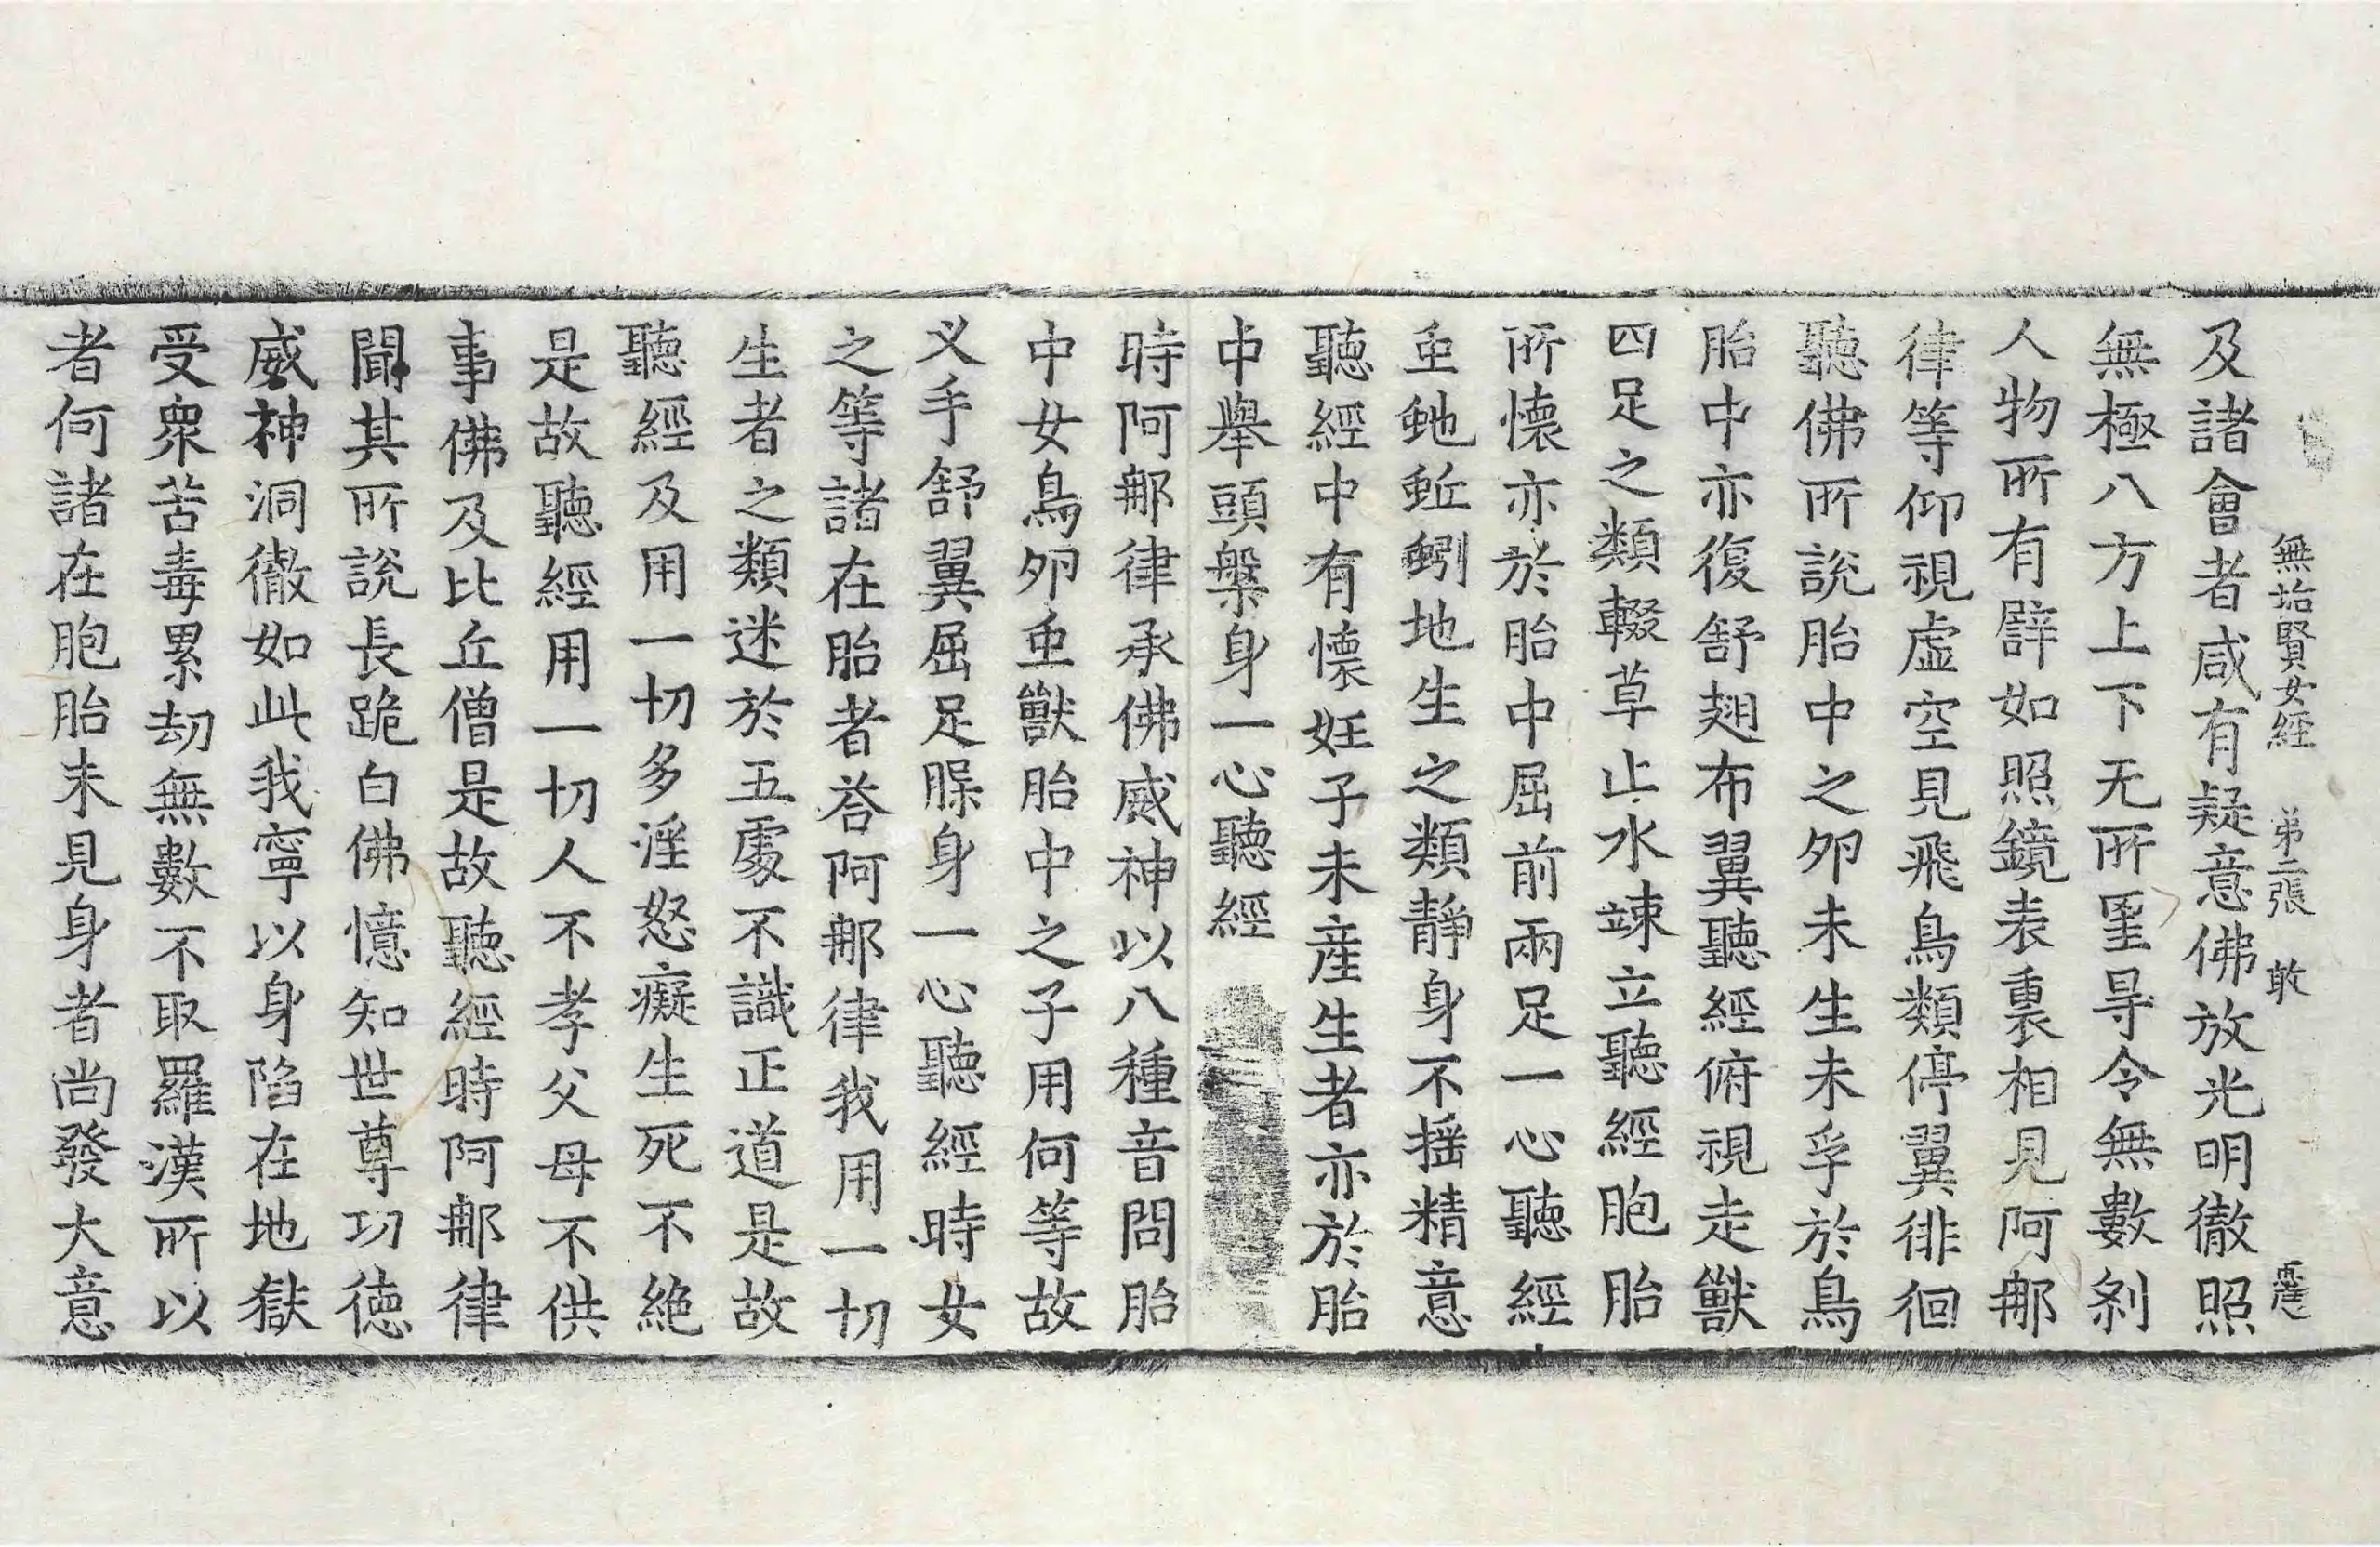 無垢賢女經 弟二張 敢
及諸會者咸有疑意佛放光明徹照
無極八方上下无所罣㝵令無數剎
人物所有辟如照鏡表裏相見阿那
律等仰視虛空見飛鳥類停翼徘徊
聽佛所說胎中之卵未生未孚於鳥
胎中亦復舒翅布翼聽經俯視走獸
四足之類輟草止水竦立聽經胞胎
所懷亦於胎中屈前兩足一心聽經
虫虵蚯蚓地生之類靜身不摇精意
聽經中有懷妊子未産生者亦於胎
中舉頭槃身一心聽經
時阿那律承佛威神以八種音問胎
中女鳥卵虫獸胎中之子用何等故
叉手舒翼屈足躶身一心聽經時女
之等諸在胎者荅阿那律我用一切
生者之類迷於五處不識正道是故
聽經及用一切多淫怒癡生死不絶
是故聽經用一切人不孝父母不供
事佛及比丘僧是故聽經時阿那律
聞其所說長跪白佛憶知世尊功徳
威神洞徹如此我寧以身陷在地獄
受衆苦毒累劫無數不取羅漢所以
者何諸在胞胎未見身者尚發大意